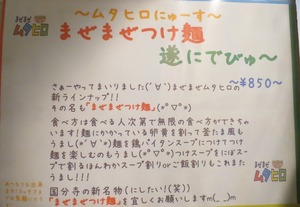 ～ムタヒロにゅーす～
まぜまぜつけ麺
遂にでびゅ～
～¥850～
まぜまぜ
ムタヒロ
さぁーやってまいりました(´∀`)まぜまぜムタヒロの
新ラインナップ!!
その名も「まぜまぜつけ麺」(*°∀°*)
食べ方は食べる人次第で無限の食べ方ができちゃ
います!麺にかかっている卵黄を割って釜たま風も
うまし(°∀°)麺を鶏パイタンスープにつけてつけ
麺を楽しむのもうまし(*°∀°*)つけスープをにぼスー
プで割るほんわかスープ割りorご飯割りもこれまた
うまし!!!
国分寺の新名物(にしたい!(笑))
「まぜまぜつけ麺」を宜しくお願いしますm(__)m
まぜまぜ
ムタヒロ